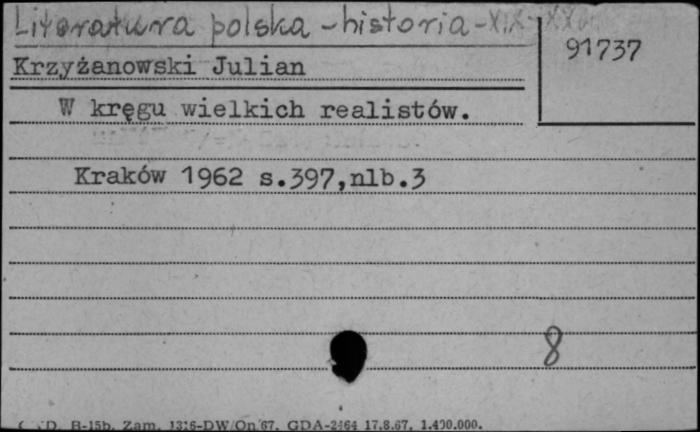 Literatura polska - historia - XIX-XX w.
91737
Krzyżanowski Julian
W kręgu wielkich realistów.
Kraków 1962 s.397,nlb.3
8
D. B-15b. Zam. 1316-DW/On/67. GDA-2464 17.8.67. 1.400.000.